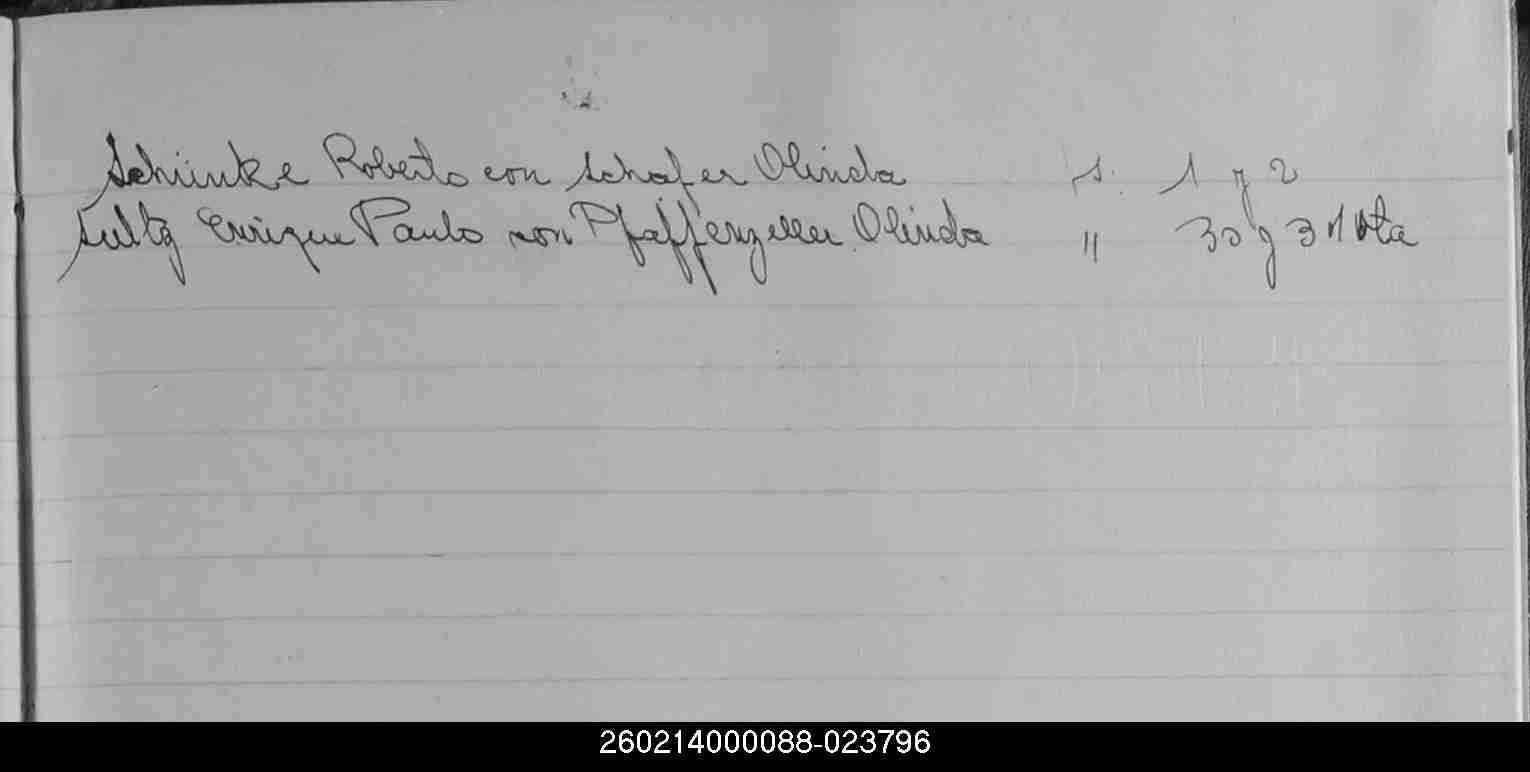 Schünke Roberto con Schafer Olinda f. 1 y 2
Sultz Enrique Paulo con Pfaffenzeller Olinda " 30 y 31 vta
260214000088-023796